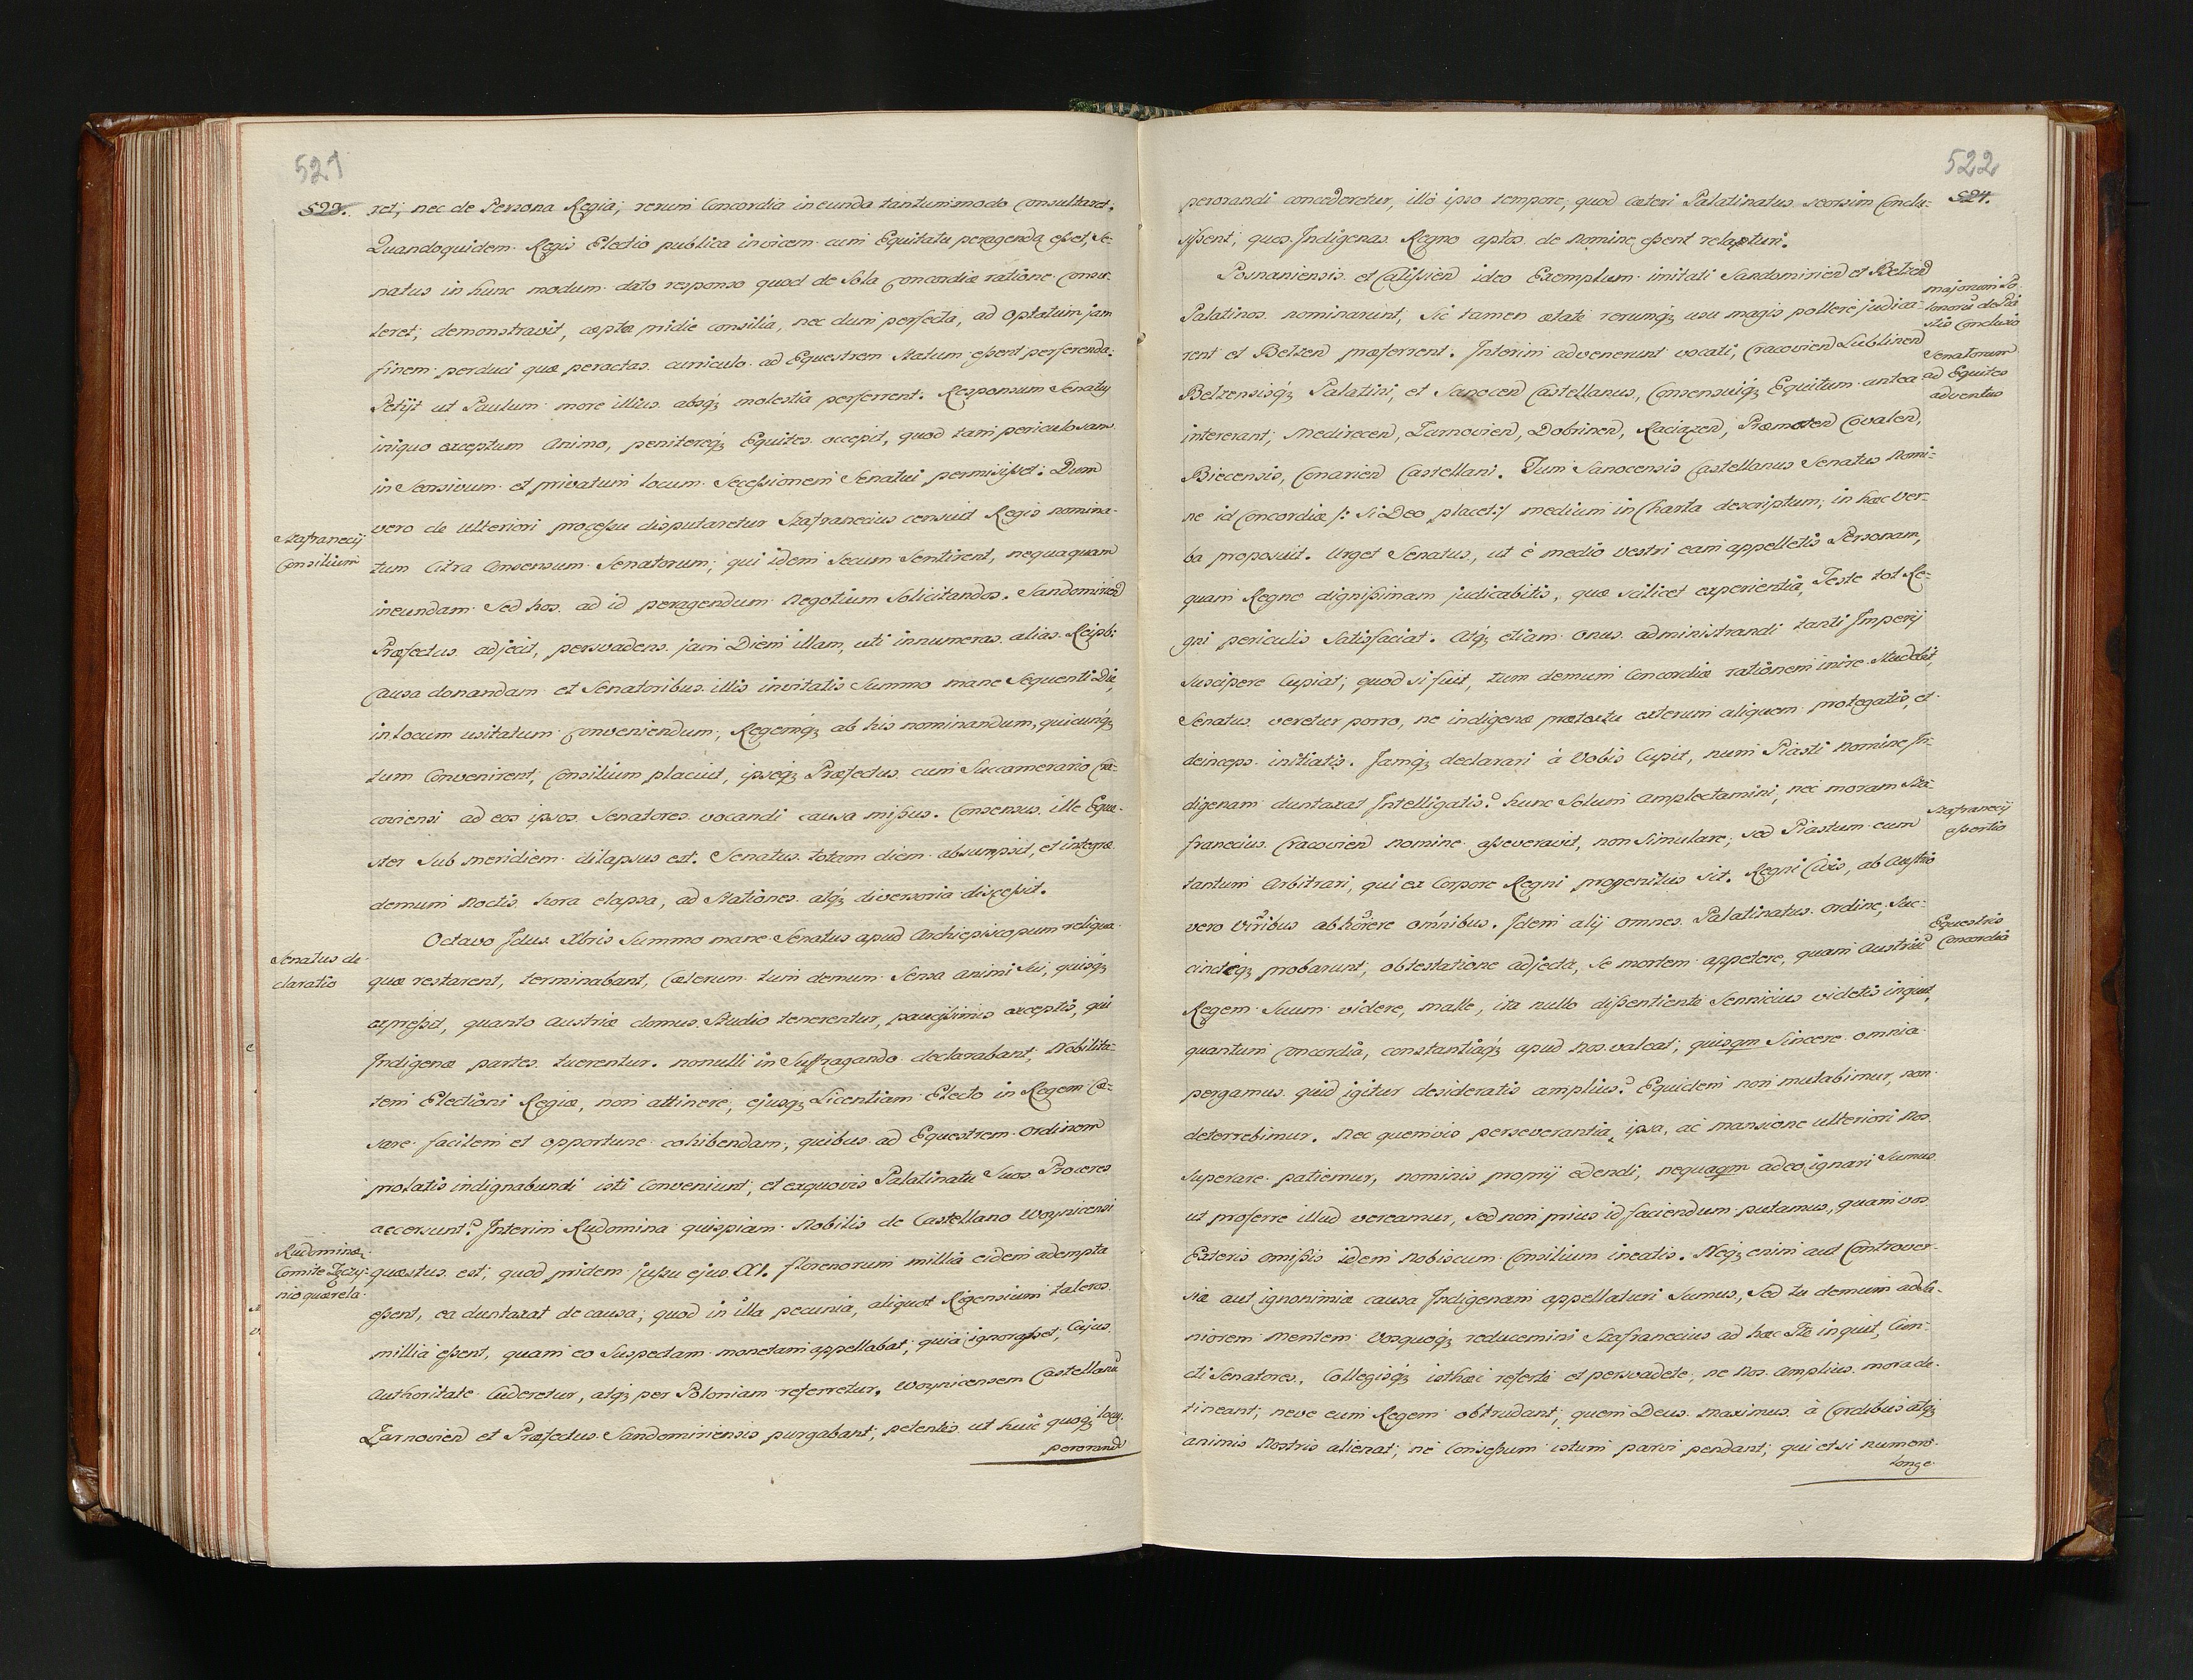 521
523.
ret; nec de Persona Regia; rerum Concordia ineunda tantummodo Consultaret.
Quandoquidem Regis Electio publica invicem cum Equitatu peragenda eßet, Se-
natus in hunc modum dato responso quod de Sola Concordiæ ratione Consu-
leret; demonstravit, cæpta pridie consilia, nec dum perfecta, ad optatum jam
finem perduci quæ peractas curriculo ad Equestrem Statum eßent perferenda.
Petijt ut Paulum more illius absq; molestia perferrent. Responsum Senatus
iniquo exceptum Animo, penitereq; Equites occepit, quod tam periculosam
in Seorsivum et privatum locum Seceßionem Senatui permisißet. Dum
vero de ulteriori proceßu disputaretur Szafranecius censuit Regis nomina-
Szafranecij
Consilium
tum Citra Consensum Senatorum; qui idem Secum Sentirent, nequaquam
ineundam Sed hos ad id peragendum Negotium Solicitandos. Sandomirien
Præfectus adjecit, persvadens jam Diem illam, uti innumeras alias Reipbl:
Causa donandam et Senatoribus illis invitatis Summo mane Sequenti Die,
in locum usitatum conveniendum, Regemq; ab his nominandum, quicunq;
tum Convenirent, Consilium placuit, ipseq; Præfectus cum Succamerario Cra-
coviensi ad eos ipsos Senatores vocandi causa mißus. Consensus ille Eque-
ster Sub meridiem dilapsus est. Senatus totam diem absumpsit, et integra
demum Noctis hora elapsa, ad Stationes atq; diversoria discessit.
Octavo Idus Xbris Summo mane Senatus apud Archiepiscopum reliqua
Senatus de-
claratio
quæ restarent, terminabant, Cæterum tum demum Sensa animi Sui, quisq;
expreßit, quanto Austriæ domus Studio tenerentur, paucißimis exceptis, qui
Indigenæ partes tuerentur. nonulli in Suffragando declarabant; Nobilita-
tem Electioni Regiæ, non attinere; ejusq; Licentiam Electo in Regem Cæ-
sare facilem et opportune cohibendam, quibus ad Equestrem Ordinem
prolatis indignabundi isti Conveniunt, et exquovis Palatinatu Suos Proceres
accersunt? Interim Rudomina quispiam Nobilis de Castellano Woynicensi
Rudominæ
Comite Tęczy-
nio quærela
quæstus est; quod pridem jußu ejus XI. florenorum millia eidem adempta
eßent, ea duntaxat de causa; quod in illa pecunia, aliquot Rigensium taleros
millia eßent, quam eo Suspectam monetam appellabat; quia ignoraßet, Cujus
Authoritate Cuderetur, atq; per Poloniam referretur. Woynicensem Castellanu
Zarnovien et Præfectus Sandomiriensis purgabant; petentis ut huic quoq; locus
perorandi
522
524.
perorandi concederetur, illo ipso tempore, quod cæteri Palatinatus seorsim Conclu-
sißent; quos Indigenas Regno aptos de Nomine eßent relaturi.
Posnaniensis et Calißien ideo Exemplum imitati Sandomirien et Belzen
majorum Po-
lonorū de Pia-
stis Conclusio
Palatinos nominarunt, Sic tamen ætate rerumq; usu magis pollere judica-
rent et Belzen præferrent. Interim advenerunt vocati, Cracovien Lublinen
Senatorum
ad Equites
adventus
Belzensisq; Palatini, et Sanocen Castellanus, Consensuiq; Equitum antea
intererant; Medirecen, Zarnovien, Dobrinen, Raciazen, Præmeten Covalen,
Biecensis, Conarien Castellani. Tum Sanocensis Castellanus Senatus Nomi-
ne id Concordiæ /: Si Deo placet :/ medium in Charta descriptum; in hæc ver-
ba proposuit. Urget Senatus, ut è medio vestri eam appelletis Personam,
quam Regno dignißimam judicabitis, quæ scilicet experientia, Teste tot Re-
gni periculis Satisfaciat. Atq; etiam onus administrandi tanti Imperij
Suscipere Cupiat; quod si fuit, tum demum Concordiæ rationem inire studebit,
Senatus veretur porro, ne indigenæ prætextu exterum aliquem protegatis, et
deinceps initiatis. Jamq; declarari à Vobis Cupit, num Piasti Nomine In-
digenam duntaxat Intelligatis? hunc Solum Amplectamini; nec moram Sza-
Szafranecij
aßertio
franecius Cracovien nomine aßeveravit, non Simulare; sed Piastum eum
tantum Arbitrari, qui ex Corpore Regni progenitus sit. Regni Civis, ab Austrio
vero Viribus abhorrere omnibus. Idem alij omnes Palatinatus Ordine, Suc-
Equestris
Concordia
cinctéq; probarunt; obtestatione adjecta, se mortem appetere, quam Austriū
Regem Suum videre, malle, ita nullo dißentiente Sennicius videtis inquit,
quantum Concordia, constantiaq; apud Nos valeat; quisqm Sincere omnia
pergamus quid igitur desideratis amplius? Equidem non mutabimur, non
deterrebimur. Nec quemvis perseverantia, ipsa, ac mansione ulteriori Nos
Superare patiemur, nominis proprij edendi, nequaqm adeo ignari Sumus
ut proferre illud vereamur, sed non prius id faciendum putamus, quam vos
Exteris omißis idem Nobiscum Consilium ineatis. Neq; enim aut Controver-
siæ aut ignonimiæ causa Indigenam appellaturi Sumus, Sed tu demum ad Sa-
niorem Mentem Vosquoq; reducemini Szafranecius ad hæc Ite inquit, Cun-
cti Senatores, Collegisq; isthæc referte et persvadete, ne Nos Amplius mora de-
tineant; neve eum Regem obtrudant, quem Deus Maximus à Cordibus atq;
animis Nostris alienat; ne Conseßum istum parvi pendant; qui et si numero
longe